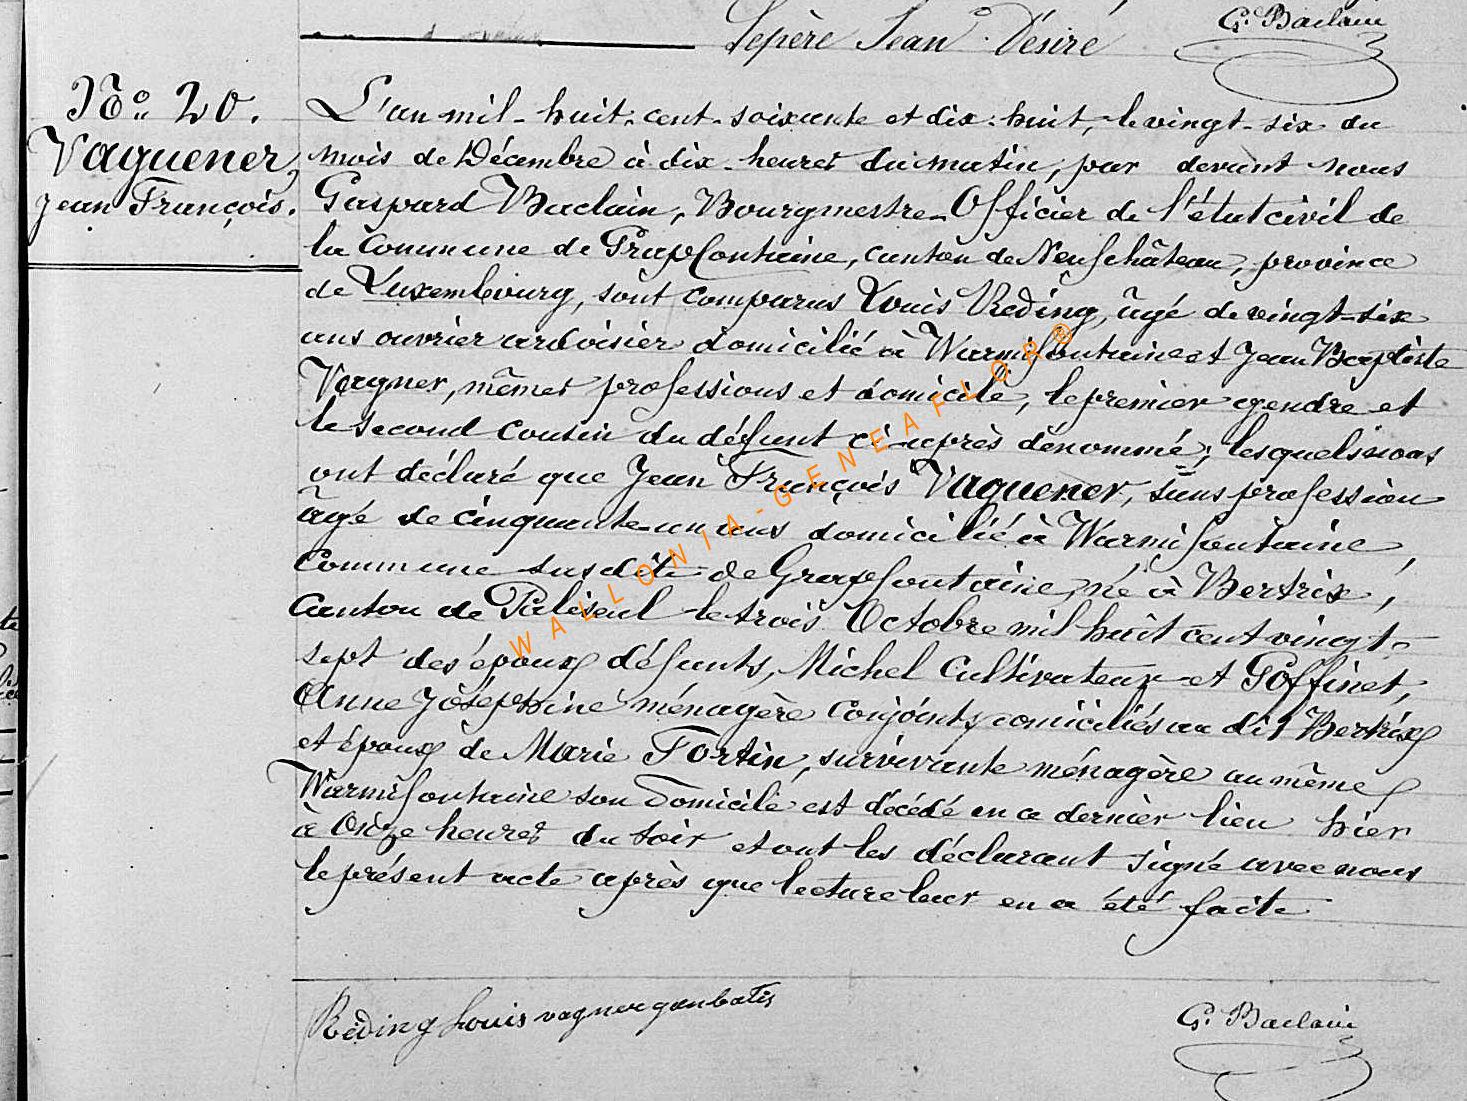 Lepère Jean Désiré
G. Baclain
No. 20.
Vaguener,
Jean François.
L'an mil-huit-cent-soixante et dix-huit, le vingt-six du
mois de Décembre à dix-heures du matin, par devant nous
Gaspard Baclain, Bourgmestre-Officier de l'état civil de
la Commune de Grapfontaine, canton de Neufchâteau, province
de Luxembourg, sont comparus Louis Reding, âgé de vingt-six
ans ouvrier ardoisier domicilié à Warmifontaine et Jean Baptiste
Vagner, mêmes professions et domicile, le premier gendre et
le second cousin du défunt ci-après dénommé; lesquels nous
ont déclaré que Jean François Vaguener, sans profession
âgé de cinquante-un ans domicilié à Warmifontaine,
Commune susdite de Grapfontaine, né à Bertrix,
Canton de Paliseul le trois Octobre mil huit cent vingt-
sept des époux défunts, Michel Cultivateur et Goffinet,
Anne Joséphine ménagère conjoints domiciliés au dit Bertrix
et époux de Marie Fortin, survivante ménagère au même
Warmifontaine son domicile est décédé en ce dernier lieu hier
à Onze heures du soir et ont les déclarant signé avec nous
le présent acte après que lecture leur en a été faite
Reding Louis vagner jean batis
G. Baclain
WALLONIA-GENEAFLOR®